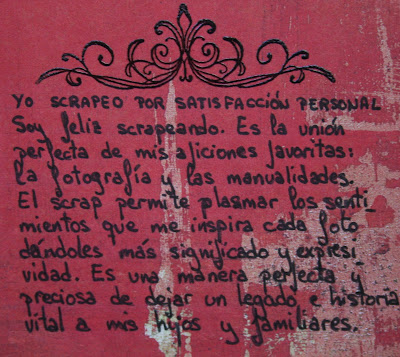 YO SCRAPEO POR SATISFACCIÓN PERSONAL
Soy feliz scrapeando. Es la unión
perfecta de mis aficiones favoritas:
la fotografía y las manualidades.
El scrap permite plasmar los senti-
mientos que me inspira cada foto
dándoles más significado y expresi-
vidad. Es una manera perfecta y
preciosa de dejar un legado e historia
vital a mis hijos y familiares.